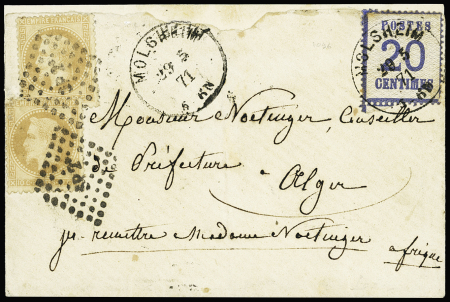 MOLSHEIM
29 5
71
POSTES
20
CENTIMES
MOLSHEIM
29 5
71
Monsieur Noetinger, Conseiller
de Préfecture
Alger
pr remettre Madame Noetinger
afrique